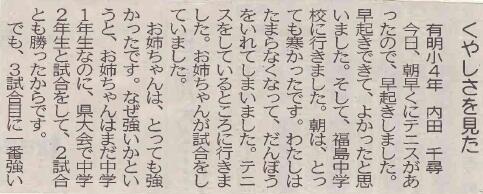 くやしさを見た
有明小4年　内田　千尋
　今日、朝早くにテニスがあ
ったので、早起きしました。
早起きできて、よかったと思
いました。そして、福島中学
校に行きました。朝は、とっ
ても寒かったです。わたしは
たまらなくなって、だんぼう
をいれてしまいました。テニ
スをしているところに行きま
した。お姉ちゃんが試合をし
ていました。
　お姉ちゃんは、とっても強
かったです。なぜ強いかとい
うと、お姉ちゃんはまだ中学
1年生なのに、県大会で中学
2年生と試合をして、2試合
とも勝ったからです。
　でも、3試合目に一番強い